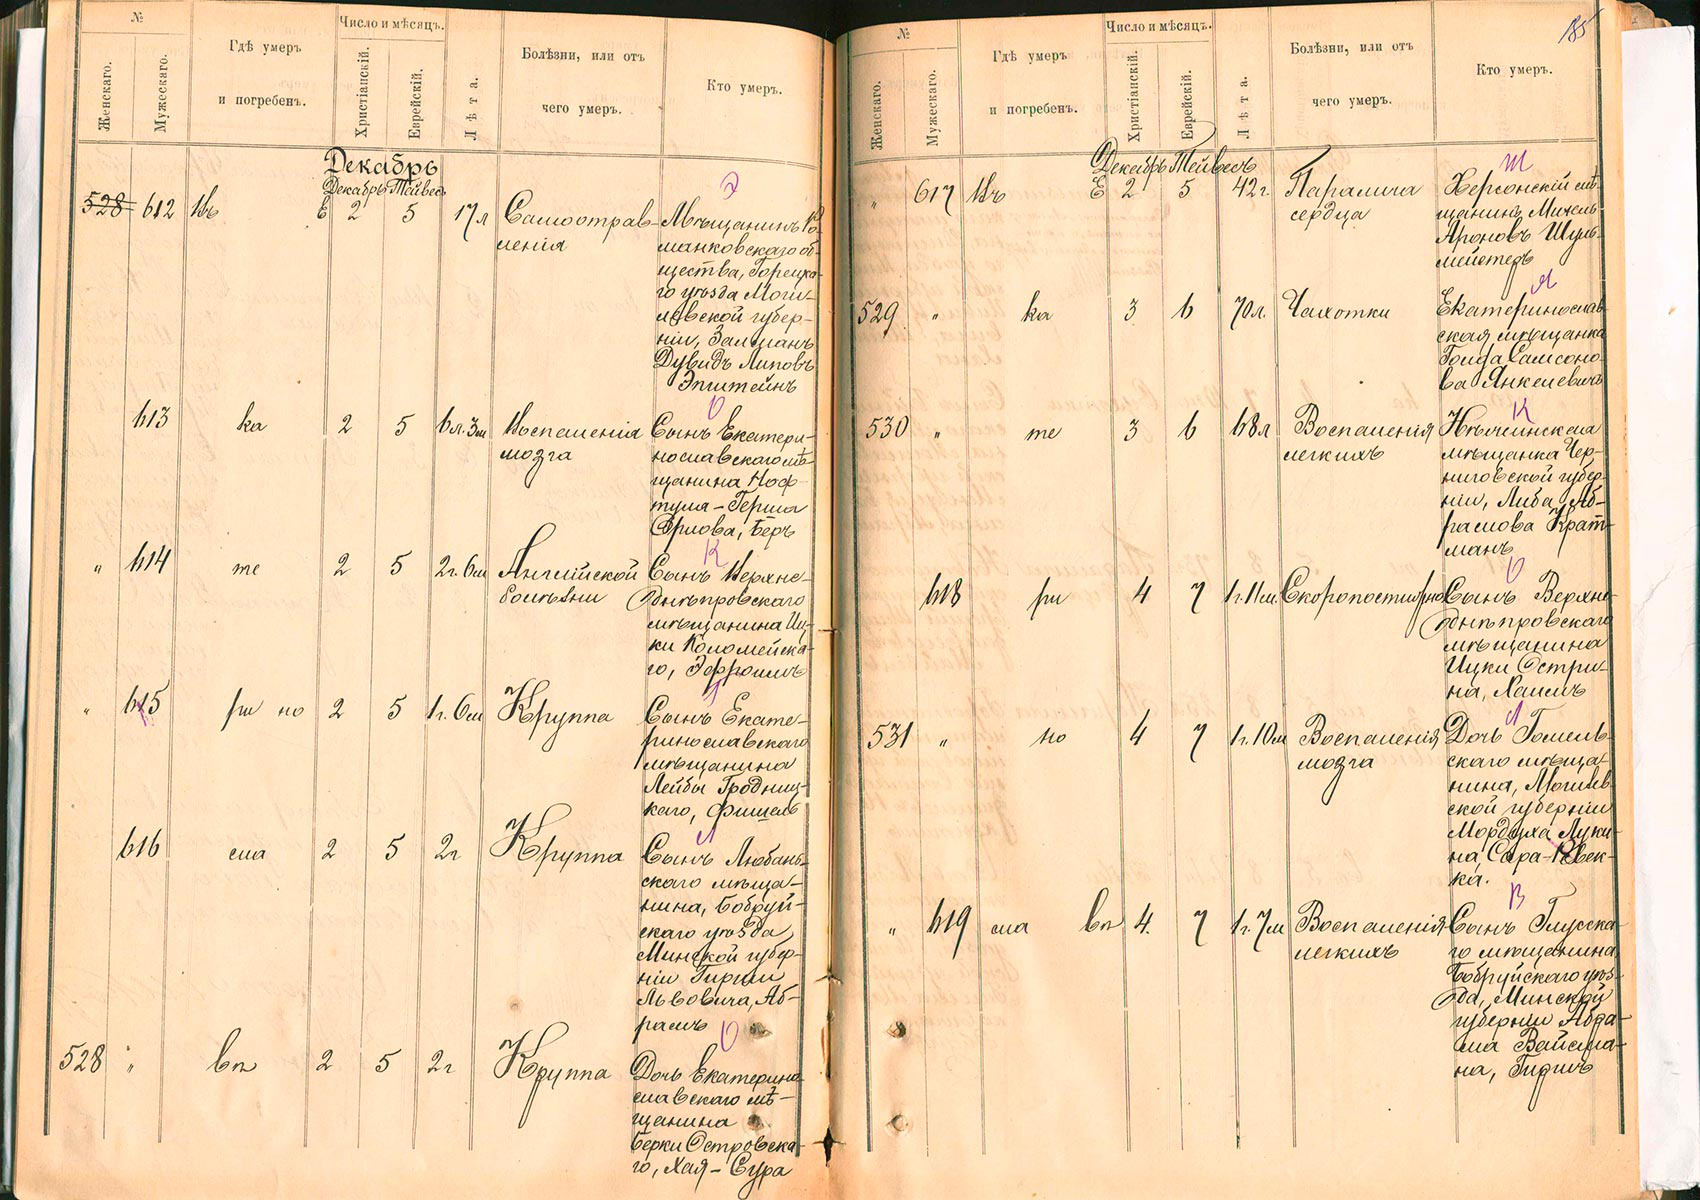 №
Число и мѣсяцъ.
Женскаго.
Мужескаго.
Гдѣ умеръ
и погребенъ.
Христіанскій.
Еврейскій.
Лѣта.
Болѣзни, или отъ
чего умеръ.
Кто умеръ.
Декабрь
Декабрь Тейвесъ
528 612 Въ Е 2 5 17 л Самоотрав-
ленія
Э
Мѣщанинъ Ро-
манковскаго об-
щества, Горецка-
го уѣзда Моги-
левской губер-
ніи, Залманъ
Дувидъ Липовъ
Эпштейнъ
613 ка 2 5 6 л. 3 м Воспаленія
мозга
О
Сынъ Екатери-
нославскаго мѣ-
щанина Ноф-
туля-Герша
Орлова, Беръ
" 614 те 2 5 2 г. 6 м Англійской
болѣзни
К
Сынъ Верхне-
днѣпровскаго
мѣщанина Иц-
ки Коломейска-
го, Эфроимъ
" 615 ри но 2 5 1 г. 6 м Круппа
Г
Сынъ Екате-
ринославскаго
мѣщанина
Лейбы Гродниц-
каго, Фишель
616 сла 2 5 2 г Круппа
Л
Сынъ Любань-
скаго мѣща-
нина, Бобруй-
скаго уѣзда
Минской губер-
ніи Гирши
Львовича, Аб-
рамъ
528 " вл 2 5 2 г Круппа
О
Дочь Екатерино-
славскаго мѣ-
щанина
Берки Островска-
го, Хая-Сура
185
№
Число и мѣсяцъ.
Женскаго.
Мужескаго.
Гдѣ умеръ
и погребенъ.
Христіанскій.
Еврейскій.
Лѣта.
Болѣзни, или отъ
чего умеръ.
Кто умеръ.
Декабрь Тейвесъ
" 617 Въ Е 2 5 42 г. Паралича
сердца
Ш
Херсонскій мѣ-
щанинъ Михель
Ароновъ Шуль-
мейстеръ
529 " ка 3 6 70 л. Чахотки
Я
Екатеринослав-
ская мѣщанка
Голда Самсоно-
ва Янкелевичъ
530 " те 3 6 68 л Воспаленія
легкихъ
К
мѣщанка Чер-
ниговской губер-
ніи, Либа Аб-
рамова Крат-
манъ
618 ри 4 7 1 г. 11 м. Скоропостижно
О
Сынъ Верхне-
днѣпровскаго
мѣщанина
Ицки Остри-
на, Хаимъ
531 " но 4 7 1 г. 10 м Воспаленія
мозга
Л
Дочь Гомель-
скаго мѣща-
нина, Могилев-
ской губерніи
Мордуха Луки-
на, Сара-Ривек-
ка.
" 619 сла вл 4. 7 1 г. 7 м Воспаленія
легкихъ
В
Сынъ Глусска-
го мѣщанина
Бобруйскаго уѣз-
да, Минской
губерніи Абра-
ма Вайсма-
на, Гиршъ